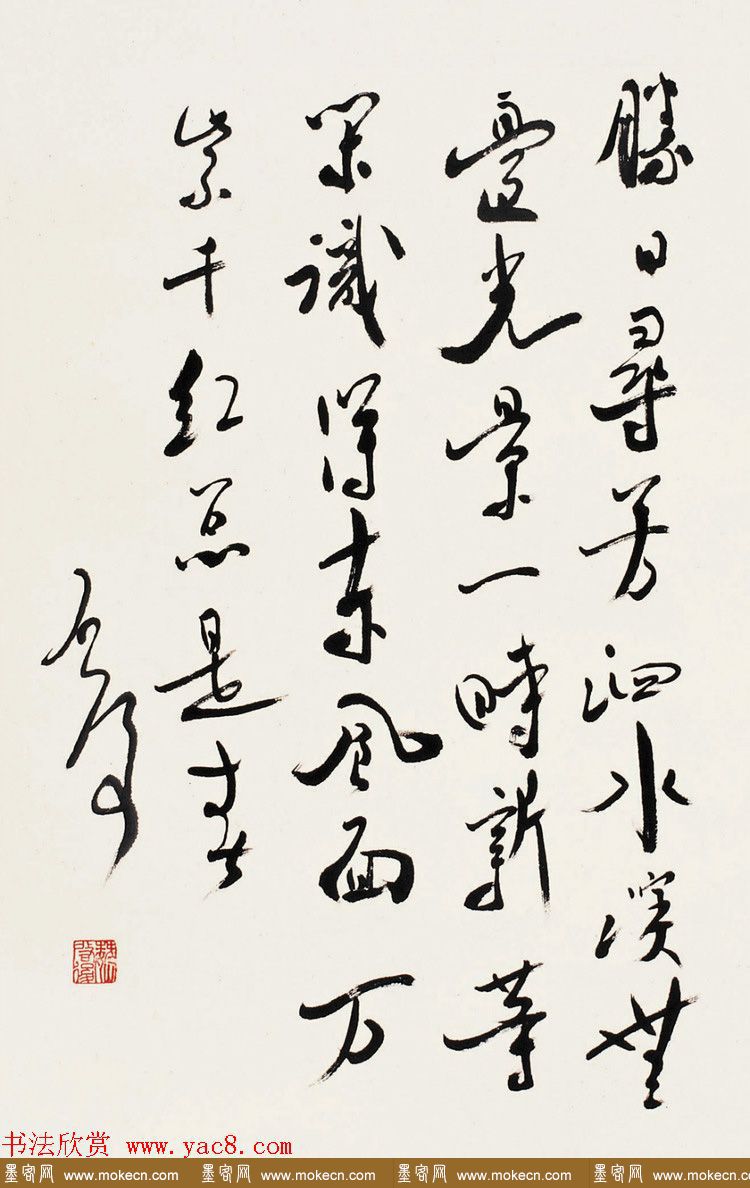 勝日尋芳泗水濱無
邊光景一時新等
閑識得東風面万
紫千紅总是春
启後
书法欣赏 www.yac8.com
墨客网 www.mokecn.com 墨客网 www.mokecn.com 墨客网 www.mokecn.com 墨客网 www.mokecn.com